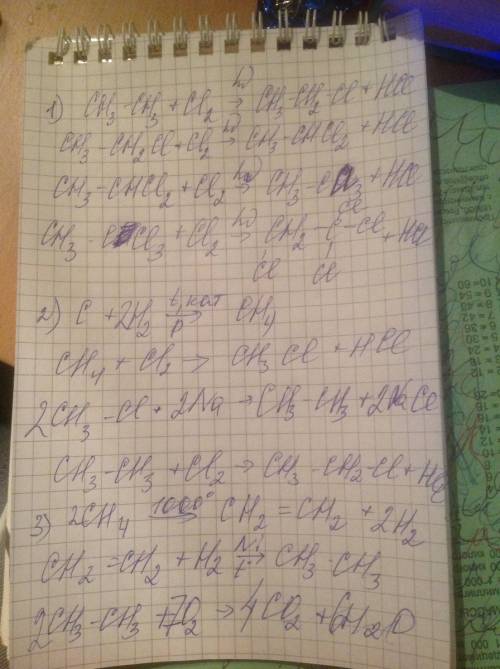 1) CH₃-CH₃ + Cl₂ →(hν) CH₃-CH₂-Cl + HCl
CH₃-CH₂Cl + Cl₂ →(hν) CH₃-CHCl₂ + HCl
CH₃-CHCl₂ + Cl₂ →(hν) CH₃-CCl₃ + HCl
Cl
CH₃-CCl₃ + Cl₂ →(hν) CH₂-C-Cl + HCl
Cl Cl
2) C + 2H₂ →(t, кат, p) CH₄
CH₄ + Cl₂ → CH₃Cl + HCl
2CH₃-Cl + 2Na → CH₃-CH₃ + 2NaCl
CH₃-CH₃ + Cl₂ → CH₃-CH₂-Cl + HCl
3) 2CH₄ →(1000°) CH₂=CH₂ + 2H₂
CH₂=CH₂ + H₂ →(Ni, t) CH₃-CH₃
2CH₃-CH₃ + 7O₂ → 4CO₂ + 6H₂O